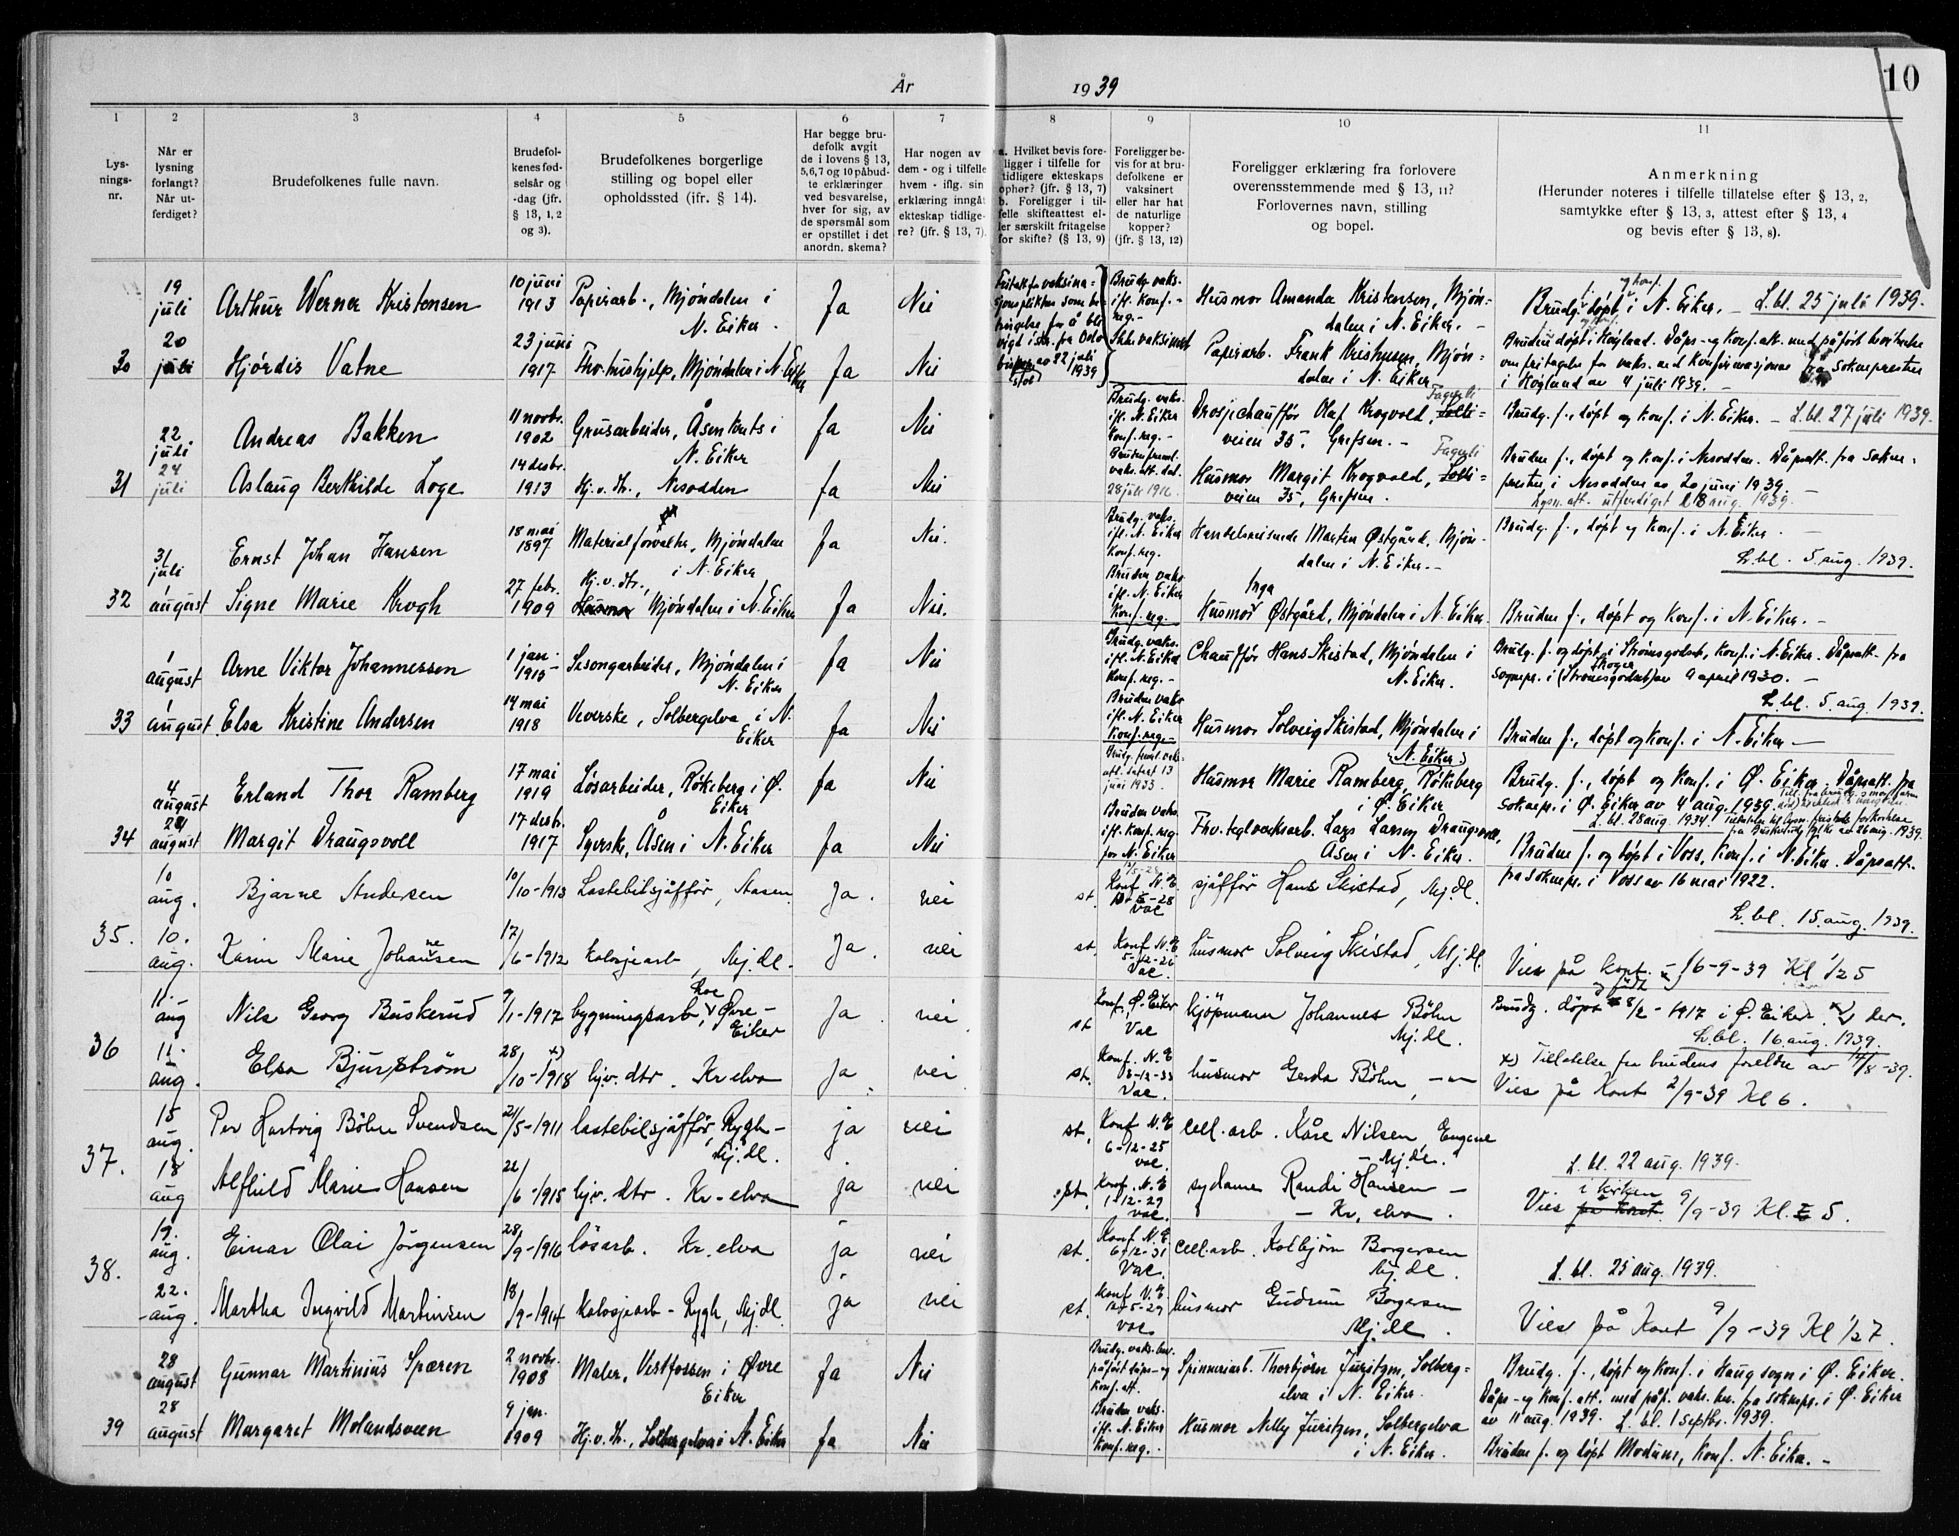 År 1939
10
1 2 3 4 5 6 7 8 9 10 11
Lys-
nings-
nr.
Når er
lysning
forlangt?
Når ut-
ferdiget?
Brudefolkenes fulle navn.
Brudefol-
kenes fød-
selsår og
-dag (jfr.
§ 13, 1, 2
og 3).
Brudefolkenes borgerlige
stilling og bopel eller
opholdssted (ifr. § 14).
Har begge bru-
defolk avgit
de i lovens § 13,
5, 6, 7 og 10 påbud-
te erklæringer
ved besvarelse,
hver for sig, av
de spørsmål som
er opstillet i det
anordn. skema?
Har nogen av
dem - og i tilfelle
hvem - iflg. sin
erklæring inngåt
ekteskap tidlige-
re? (jfr. § 13, 7).
a. Hvilket bevis fore-
ligger i tilfelle for
tidligere ekteskaps
ophør? (jfr. § 13, 7)
b. Foreligger i til-
felle skifteattest el-
ler særskilt fritagelse
for skifte? (§ 13, 9)
Foreligger be-
vis for at bru-
defolkene er
vaksinert
eller har hat
de naturlige
kopper?
(jfr. § 13, 12)
Foreligger erklæring fra forlovere
overensstemmende med § 13, 11?
Forlovernes navn, stilling
og bopel.
Anmerkning
(Herunder noteres i tilfelle tillatelse efter § 13, 2,
samtykke efter § 13, 3, attest efter § 13, 4
og bevis efter § 13, 8).
19 juli Arthur Werner Kristensen 10 juni 1913 Papirarb., Mjøndalen i N. Eiker. Ja Nei
Brudg. vaks. ifl. Konf.-reg.- Husmor Amanda Kristensen, Mjøn-
dalen i N. Eiker. -
Brudg. f., døpt og konf. i N. Eiker. - L. bl. 25 juli 1939.
30 20 juli Hjørdis Vatne 23 juni 1917 Fhv. hushjelp, Mjøndalen i N. Eiker Ja Nei
Ikke vaksinert Papirarb. Frank Kristensen, Mjøn-
dalen i N. Eiker
Bruden døpt i Høyland. Dåps- og Konf. att. med påført
om fritagelse for vaks. ved konfirmasjonen fra soknepresten
i Høyland av 4 juli 1939. -
22 juli Andreas Bakken 11 novbr. 1902 Grusarbeider, Åsen i N. Eiker Ja Nei
Brudg. vaks. ifl. N. Eiker Konf. reg. - Drosjechauffør Olaf Krogvold, Fagerli-
veien 35, Grefsen. -
Brudg. f., døpt og konf. i N. Eiker. - L. bl. 27 juli 1939.
31 24 juli Aslaug Berthilde Loge 14 desbr. 1913 Hj. v. Hr., Nesodden Ja Nei
Bruden freml. vaks. att. dat. 28 juli 1916. Husmor Margit Krogvold, Fagerli-
veien 35, Grefsen.
Bruden f., døpt og konf. i Nesodden. Dåpsatt. fra sokne-
presten i Nesodden av 20 juni 1939. -
Lysn. att. utferdiget 18 aug. 1939.
31 juli Ernst Johan Hansen 18 mai 1897 Materialforvalter, Mjøndalen i N. Eiker Ja Nei.
Brudg. vaks. ifl. N. Eiker Konf. reg. Handelsreisende Martin Østgård, Mjøn-
dalen i N. Eiker. -
Brudg. f., døpt og konf. i N. Eiker. -
L. bl. 5. aug. 1939.
32 1 august Signe Marie Krogh 27 febr. 1909 Hj. v. Hr., Mjøndalen i N. Eiker Ja Nei.
Bruden vaks. ifl. N. Eiker Konf. reg. Husmor Inga Østgård, Mjøndalen i N. Eiker.
Bruden f., døpt og konf. i N. Eiker. -
1 august Arne Viktor Johannessen 1 jan. 1915 Sesongarbeider, Mjøndalen i N. Eiker Ja Nei
Brudg. vaks. ifl. N. Eiker Konf. reg. - Chauffør Hans Skistad, Mjøndalen i
N. Eiker.
Brudg. f. og døpt i Strømsgodset, Konf. i N. Eiker. Dåpsatt. fra
sognepr. i Skoger (Strømsgodset) av 9 april 1930. -
L. bl. 5. aug. 1939.
33 1 august Elsa Kristine Andersen 14 mai 1918 Veverske, Solbergelva i N. Eiker Ja Nei
Bruden vaks. ifl. N. Eiker Konf. reg. - Husmor Solveig Skistad, Mjøndalen i
N. Eiker.
Bruden f., døpt og konf. i N. Eiker -
4 august Erland Thor Ramberg 17 mai 1919 Løsarbeider, Røkeberg i Ø. Eiker Ja Nei
Brudg. freml. vaks. att. datert 13 juni 1933 Husmor Marie Ramberg, Røkeberg
i Ø. Eiker
Brudg. f., døpt og konf. i Ø. Eiker. Dåpsatt. fra
soknepr. i Ø. Eiker av 4 aug. 1939.
L. bl. 28 aug. 1939.
34 24 august Margit Draugsvoll 17 desbr. 1917 Syerske, Åsen i N. Eiker Ja Nei
Bruden vaks. ifl. Konf. reg. for N. Eiker Fhv. teglverksarb. Lars Larsen Draugsvoll,
Åsen i N. Eiker.
Bruden f. og døpt i Voss, Konf. i N. Eiker. Dåpsatt.
fra soknepr. i Voss av 16 mai 1922.
10 aug. Bjarne Andersen 10/10-1913 Lastebilsjåffør, Aasen Ja. nei
st. Konf. N. E. Vac sjåffør Hans Skistad, Mj.dl.
L. bl. 15. aug. 1939.
35. 10. aug. Karin Marie Johannesen 17/6-1912 kalosjearb, Mj.dl. Ja. nei
st. Konf N. E 5-12-26 Vac. husmor Solveig Skistad, Mj.dl.
Vies på kont. - 16-9-39 Kl 1/2 5
11. aug Nils Georg Buskerud 9/1-1917 bygningsarb, Hoe, Øvre-
Eiker Ja nei
st Konf. Ø. Eiker Vac kjöpmann Johannes Böhn
Mj.dl.
Brudg. døpt og født 8/2-1917 i Ø. Eiker.
L. bl. 16 aug. 1939.
36 11. aug. Elsa Bjurström 28/10-1918 x) hjv. dtr. Kr elva Ja. nei.
st. Konf. N. E 3-12-33 Vac. husmor Gerda Böhn, -"-
x) Tillatelse fra brudens foreldre av 14/8-39.
Vies på Kont 2/9-39 Kl 6.
15 aug. Per Hartvig Böhn Svendsen 21/5-1911 lastebilsjåffør, Rygh-
Mj.dl. ja nei
st. Konf N. E 6-12-25 vac. cell. arb. Kåre Nilsen, Engene
- Mj.dl.
L. bl. 22 aug. 1939.
37. 18 aug Alfhild Marie Hansen 22/6-1915 hjv. dtr. Kr-elva ja nei
st. Konf. N. E 1-12-29 vac. sydame Randi Hansen -
- Kr. elva.
Vies i kirken på Kont. 9/9-39 Kl. 5.
19. aug. Einar Olai Jörgensen 28/9-1916 lösarb. Kr. elva ja nei
st. Konf N. E 6-12-31 Vac. cell. arb. Kolbjörn Borgersen
Mj.dl.
L. bl. 25 aug. 1939.
38. 22. aug. Martha Ingvild Martinsen 18/9-1914 Kalosjearb - Rygh, Mj.dl ja nei
st. Konf V. E 12-5-29 vac. husmor Gudrun Borgersen
Mj.dl.
Vies på Kont 9/9-39 Kl 1/2 7.
28 august Gunnar Martinius Spæren 2 novbr. 1908 Maler, Vestfossen i Øvre
Eiker Ja Nei
Brudg. vaks. bev. påført dåps- og Konf. att. Spinneriarb. Thorbjörn Juritzen, Solberg-
elva i N. Eiker.
Brudg. f., døpt og konf. i Haug sogn i Ø. Eiker.
Dåps- og Konf. att. med påf. vaks. bev. fra soknepr. i Ø. Eiker
av 11 aug. 1939. L. bl. 1 septbr. 1939.
39 28 august Margaret Molandsveen 9 jan. 1909 Hj. v. Hr., Solbergelva i N. Eiker Ja Nei
Bruden vaks. ifl. N. Eiker Konf. reg. - Husmor Nelly Juritzen, Solbergelva
i N. Eiker.
Bruden f. og døpt Modum, Konf. N. Eiker. -